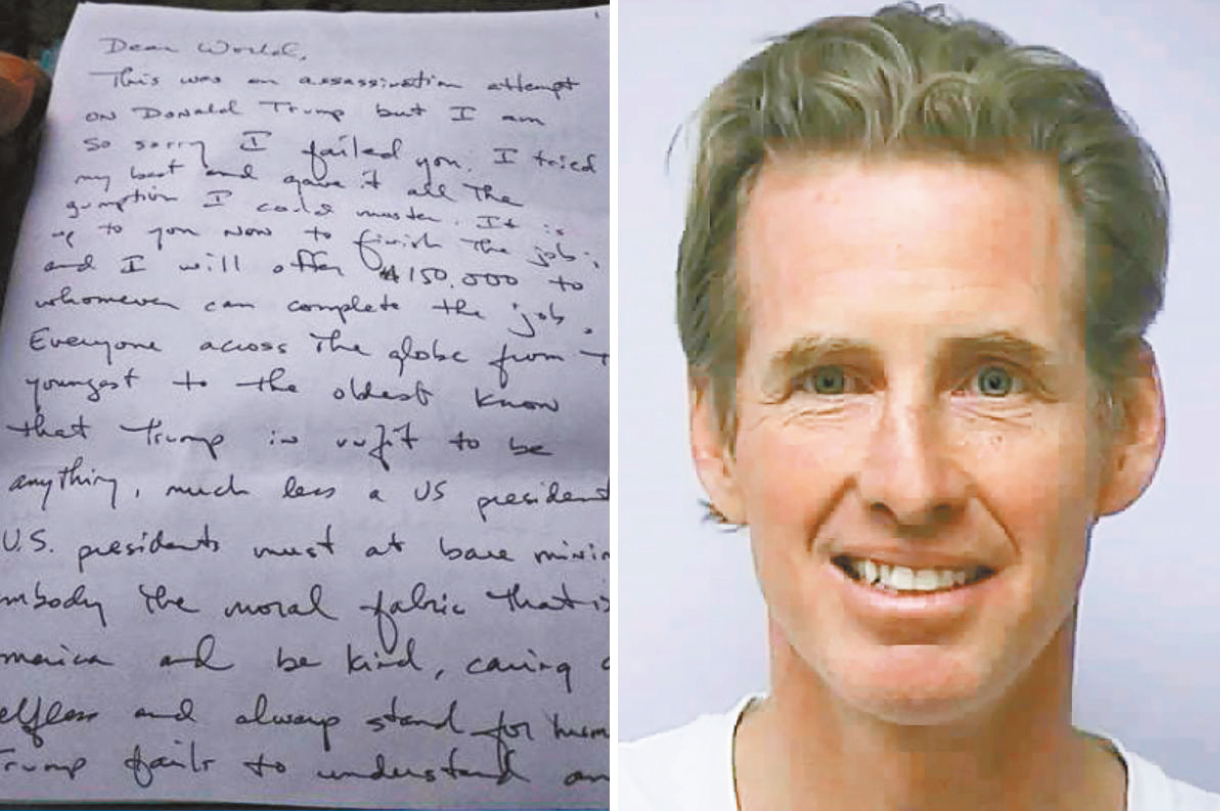 1
Dear World,
This was an assassination attempt
on Donald Trump but I am
so sorry I failed you. I tried
my best and gave it all the
gumption I could muster. It is
up to you now to finish the job;
and I will offer $150,000 to
whomever can complete the job.
Everyone across the globe from t
youngest to the oldest know
that Trump is unfit to be
anything, much less a US president
U.S. presidents must at bare minim
mbody the moral fabric that is
merica and be kind, caring a
elfless and always stand for hum
Trump fails to understand an